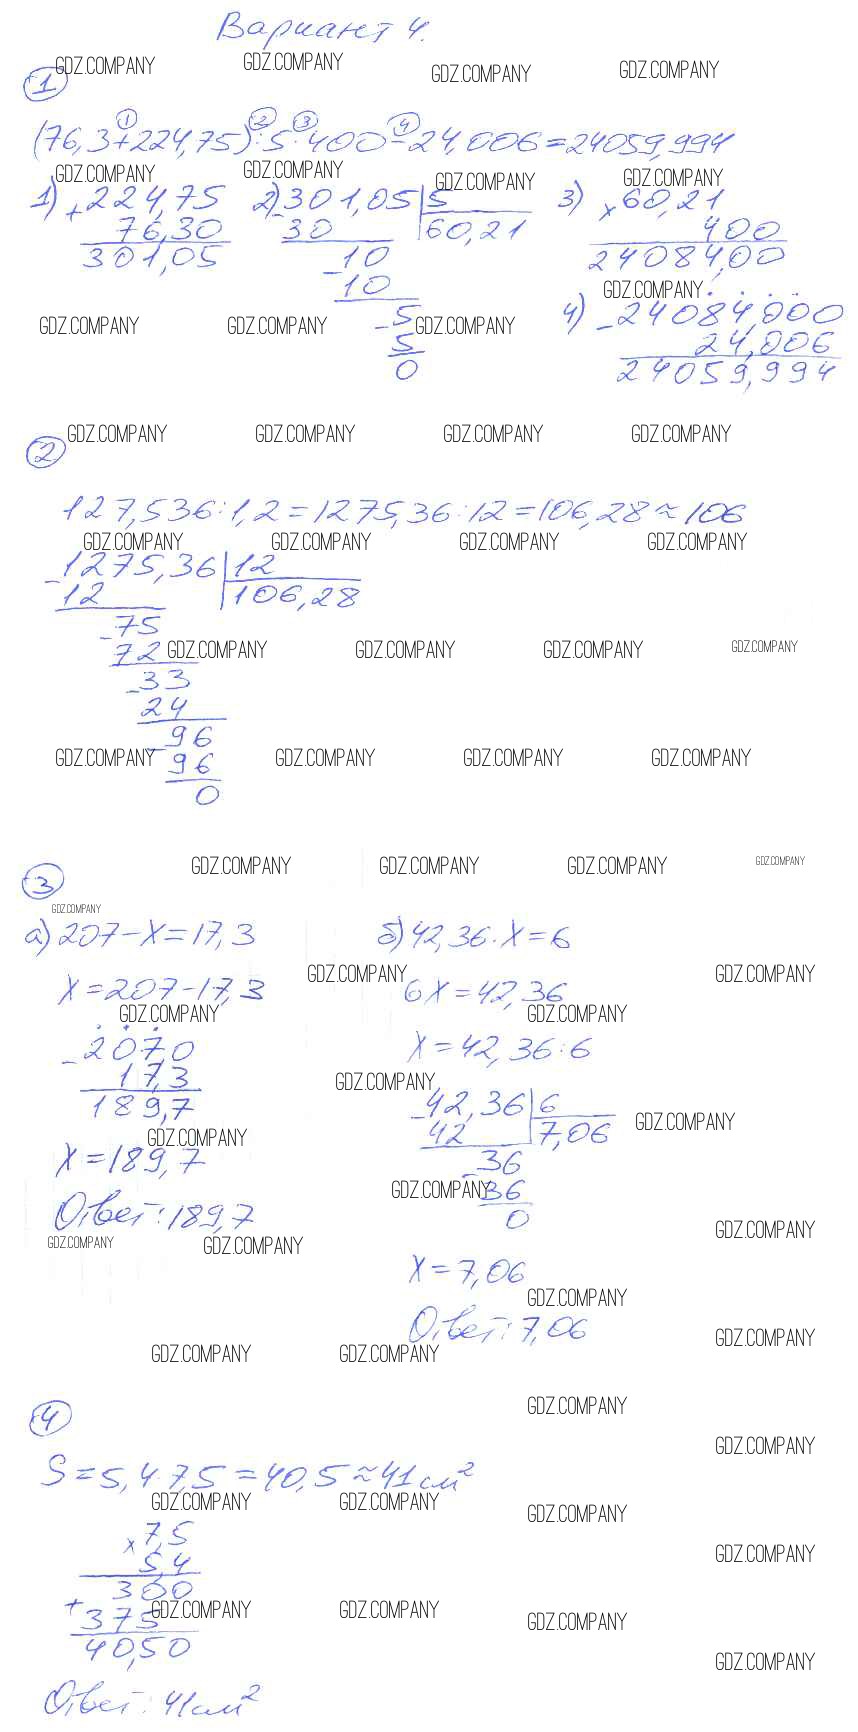 Вариант 4.
GDZ.COMPANY GDZ.COMPANY GDZ.COMPANY GDZ.COMPANY
1
1 2 3 4
(76,3+224,75):5·400-24,006=24059,994
GDZ.COMPANY GDZ.COMPANY GDZ.COMPANY GDZ.COMPANY
1) +224,75 2) -301,05 | 5 3) ×60,21
76,30 30 60,21 400
301,05 -10 24084,00
10 GDZ.COMPANY
GDZ.COMPANY GDZ.COMPANY -5 GDZ.COMPANY 4) -24084,000
5 24,006
0 24059,994
GDZ.COMPANY GDZ.COMPANY GDZ.COMPANY GDZ.COMPANY
2
127,536:1,2=1275,36:12=106,28≈106
GDZ.COMPANY GDZ.COMPANY GDZ.COMPANY GDZ.COMPANY
-1275,36 | 12
12 106,28
-75
72 GDZ.COMPANY GDZ.COMPANY GDZ.COMPANY GDZ.COMPANY
-33
24
-96
GDZ.COMPANY 96 GDZ.COMPANY GDZ.COMPANY GDZ.COMPANY
0
GDZ.COMPANY GDZ.COMPANY GDZ.COMPANY GDZ.COMPANY
3
GDZ.COMPANY
а) 207-X=17,3 б) 42,36·X=6
GDZ.COMPANY GDZ.COMPANY
X=207-17,3 6X=42,36
GDZ.COMPANY GDZ.COMPANY
-207,0 X=42,36:6
17,3 GDZ.COMPANY
189,7 -42,36 | 6
GDZ.COMPANY 42 7,06 GDZ.COMPANY
X=189,7 -36
GDZ.COMPANY 36
Ответ: 189,7 0
GDZ.COMPANY GDZ.COMPANY GDZ.COMPANY
X=7,06
GDZ.COMPANY
Ответ: 7,06
GDZ.COMPANY GDZ.COMPANY GDZ.COMPANY
GDZ.COMPANY
4
GDZ.COMPANY
S=5,4·7,5=40,5≈41см²
GDZ.COMPANY GDZ.COMPANY GDZ.COMPANY
×7,5
5,4 GDZ.COMPANY
300
+375 GDZ.COMPANY GDZ.COMPANY GDZ.COMPANY
40,50 GDZ.COMPANY
Ответ: 41см²